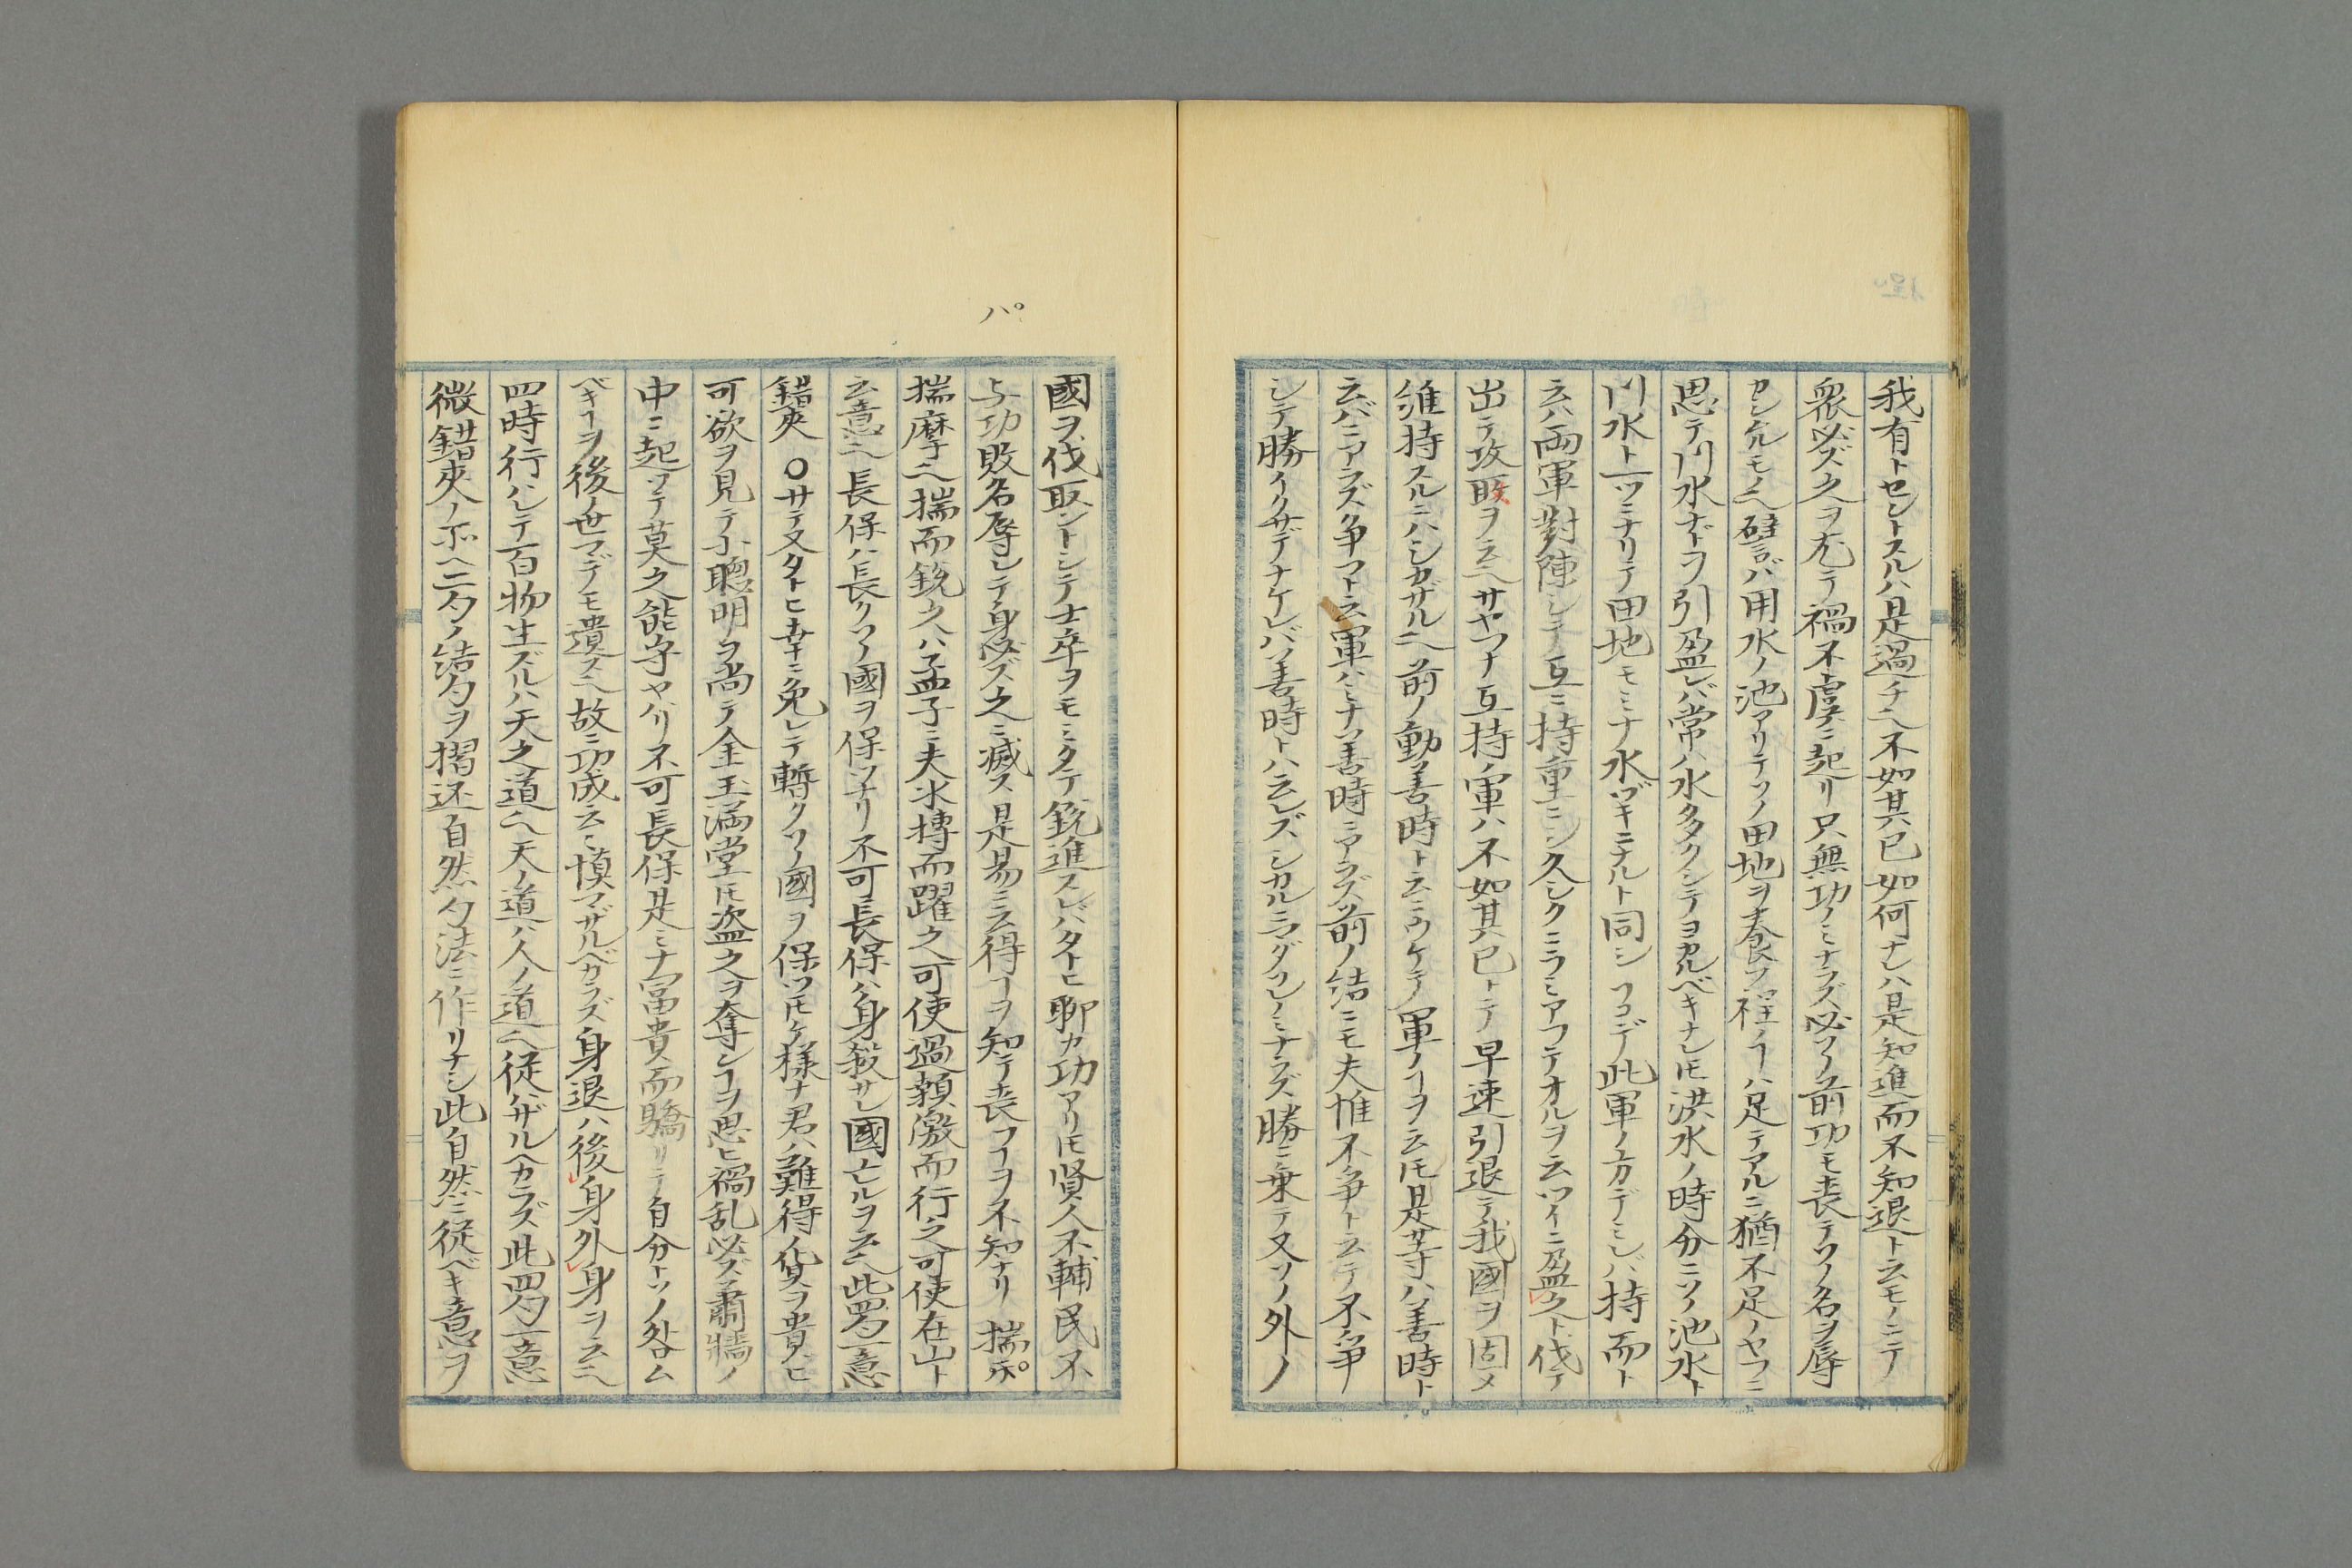 我有トセントスルハ是過チ也不如其已如何ナレハ是知進而不知退ト云モノニテ
衆必ズ之ヲ尤テ禍不虞ニ起リ只無功ノミナラズ必ソノ前功モ喪テソノ名ヲ辱
カシクルモノ也譬ハバ用水ノ池アリテソノ田地ヲ養フ程ノヿハ足テアルニ猶不足ノヤフニ
思テ川水ナドヲ引盈レバ常ハ水タクタクシテヨカルベキナレ𪜈洪水ノ時分ニソノ池水ト
川水ト一ツニナリテ田地モミナ水ヅキニナルト同シソコデ此軍ノ方デミレバ持而ト
云ハ両軍對陣シテ互ニ持重ニシ久シクニラミアフテオルヲ云ツイニ盈之ト伐テ
出テ攻敗ヲ云ヘサヤフナ互持ノ軍ハ不如其已トテ早速引退テ我國ヲ固メ
維持スルニハシカザル也前ノ動善時ト云ニウケテ軍ノヿヲ云𪜈是等ハ善時ト
云バニアラズ争フト云軍ハミナ善時ニアラズ前ノ結ニモ夫惟不争ト云テ不争
シテ勝イクサデナケレバ善時トハ云レズシカルニマダソレノミナラズ勝ニ乗テ又ソノ外ノ
ハ゜
國ヲ伐取ントシテ士卒ヲモミタテ鋭進スレバタトヒ聊カ功アリ𪜈賢人不輔民不
与功敗名辱レテ身必ズ之ニ滅ス是易ニ云得ヿヲ知テ喪フヿヲ不知ナリ揣ハ
揣摩也揣而鋭之ハ孟子ニ夫水搏而躍之可使過顙激而行之可使在山ト
云意也長保ハ長クソノ國ヲ保ツナリ不可長保ハ身殺サレ國亡ルヲ云也此四句一意
錯夾〇サテ又タトヒ幸ニ免レテ暫クソノ國ヲ保ツ𪜈ケ様ナ君ハ難得ノ貨ヲ貴ヒ
可欲ヲ見テ小聰明ヲ尚テ金玉満堂𪜈盗之ヲ奪レヿヲ思ヒ禍乱必ズ蕭牆ノ
中ニ起ツテ莫之能守ヤハリ不可長保是ミナ冨貴而驕リテ自分トソノ咎ム
ベキヿヲ後ノ世マデモ遺ス也故ニ功成云々慎マザルベカラズ身退ハ後身外身ヲ云也
四時行ハレテ百物生ズルハ天之道也天ノ道ハ人ノ道也従ハザルヘカラズ此四句一意
微錯夾ノ示也二句ノ結句ヲ摺还自然句法ニ作リナシ此自然ニ従ベキ意ヲ